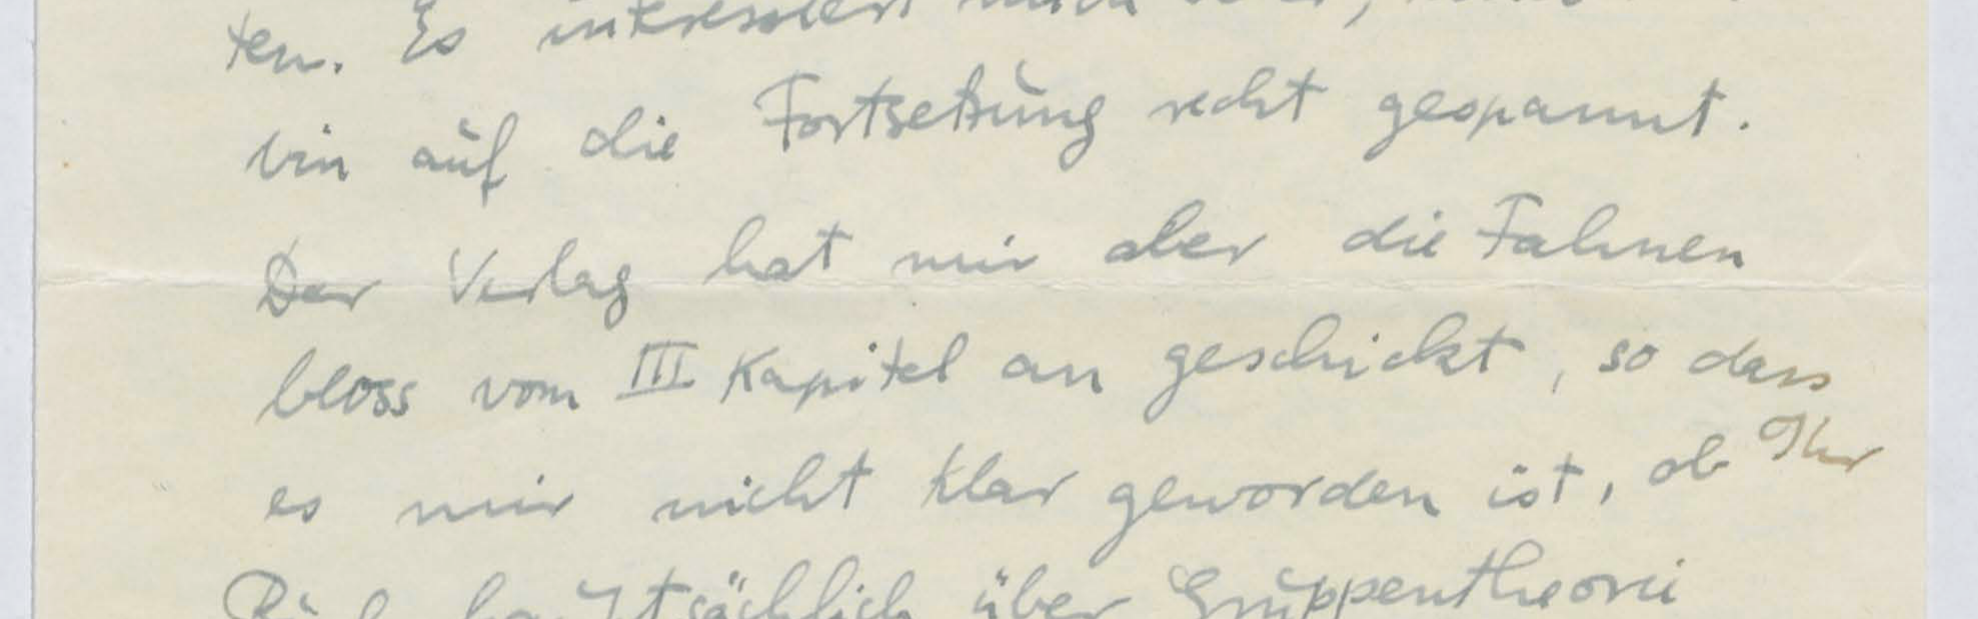 ten. Es interessiert mich sehr,
bin auf die Fortsetzung recht gespannt.
Der Verlag hat mir aber die Fahnen
bloss vom III Kapitel an geschickt, so dass
es mir nicht klar geworden ist, ob Ihr
Buch hauptsächlich über Gruppentheorie